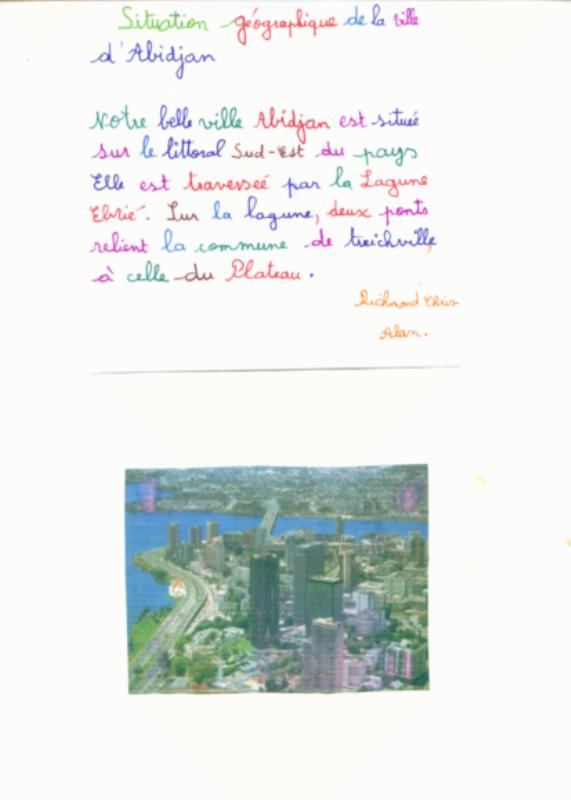 Situation géographique de la ville
d'Abidjan
Notre belle ville Abidjan est située
sur le littoral Sud-Est du pays
Elle est traverseé par la Lagune
Ebrié. Sur la lagune, deux ponts
relient la commune de treichville,
à celle du Plateau.
Richmond Chris
Alan.